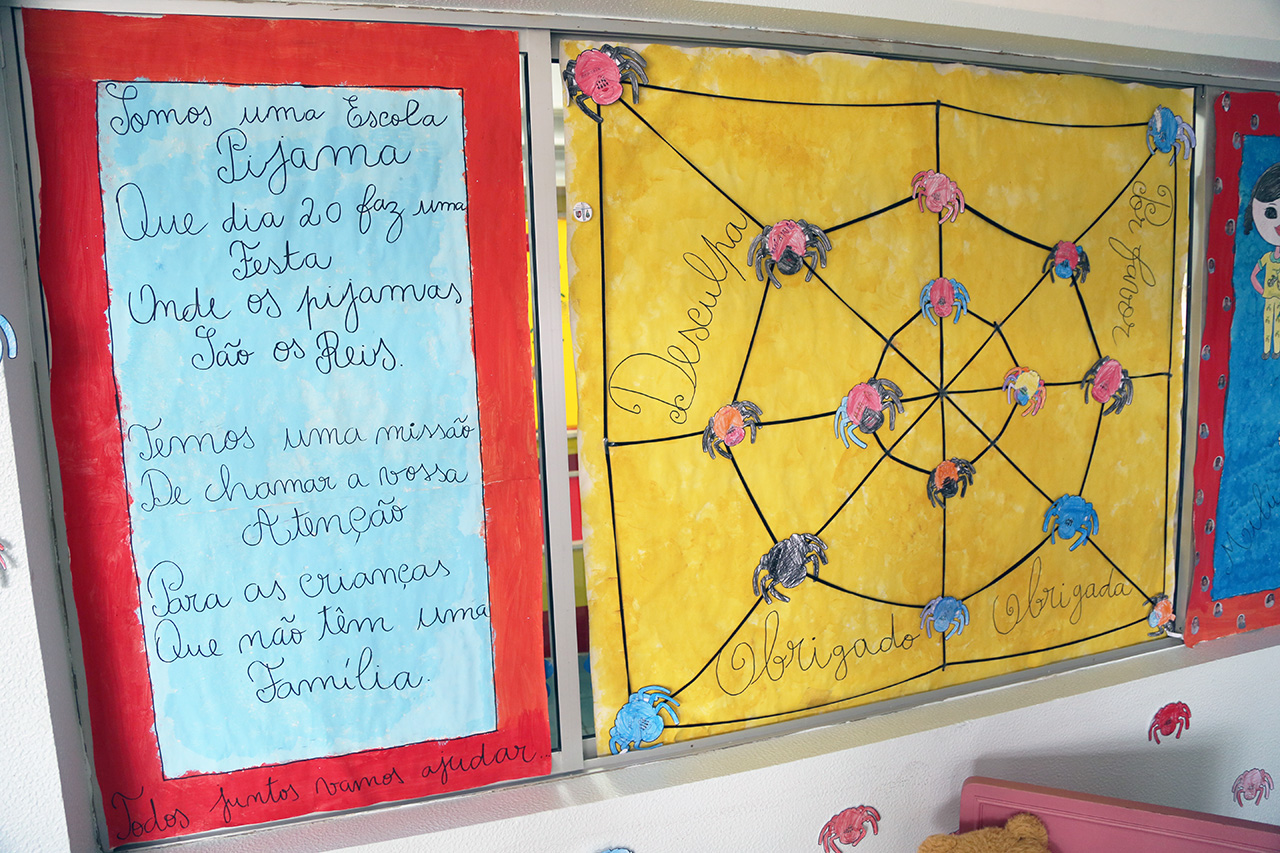 Somos uma Escola
Pijama
Que dia 20 faz uma
Festa
Onde os pijamas
São os Reis.
Temos uma missão
De chamar a vossa
Atenção
Para as crianças
Que não têm uma
Família.
Todos juntos vamos ajudar...
Desculpa
Por favor
Obrigado
Obrigada